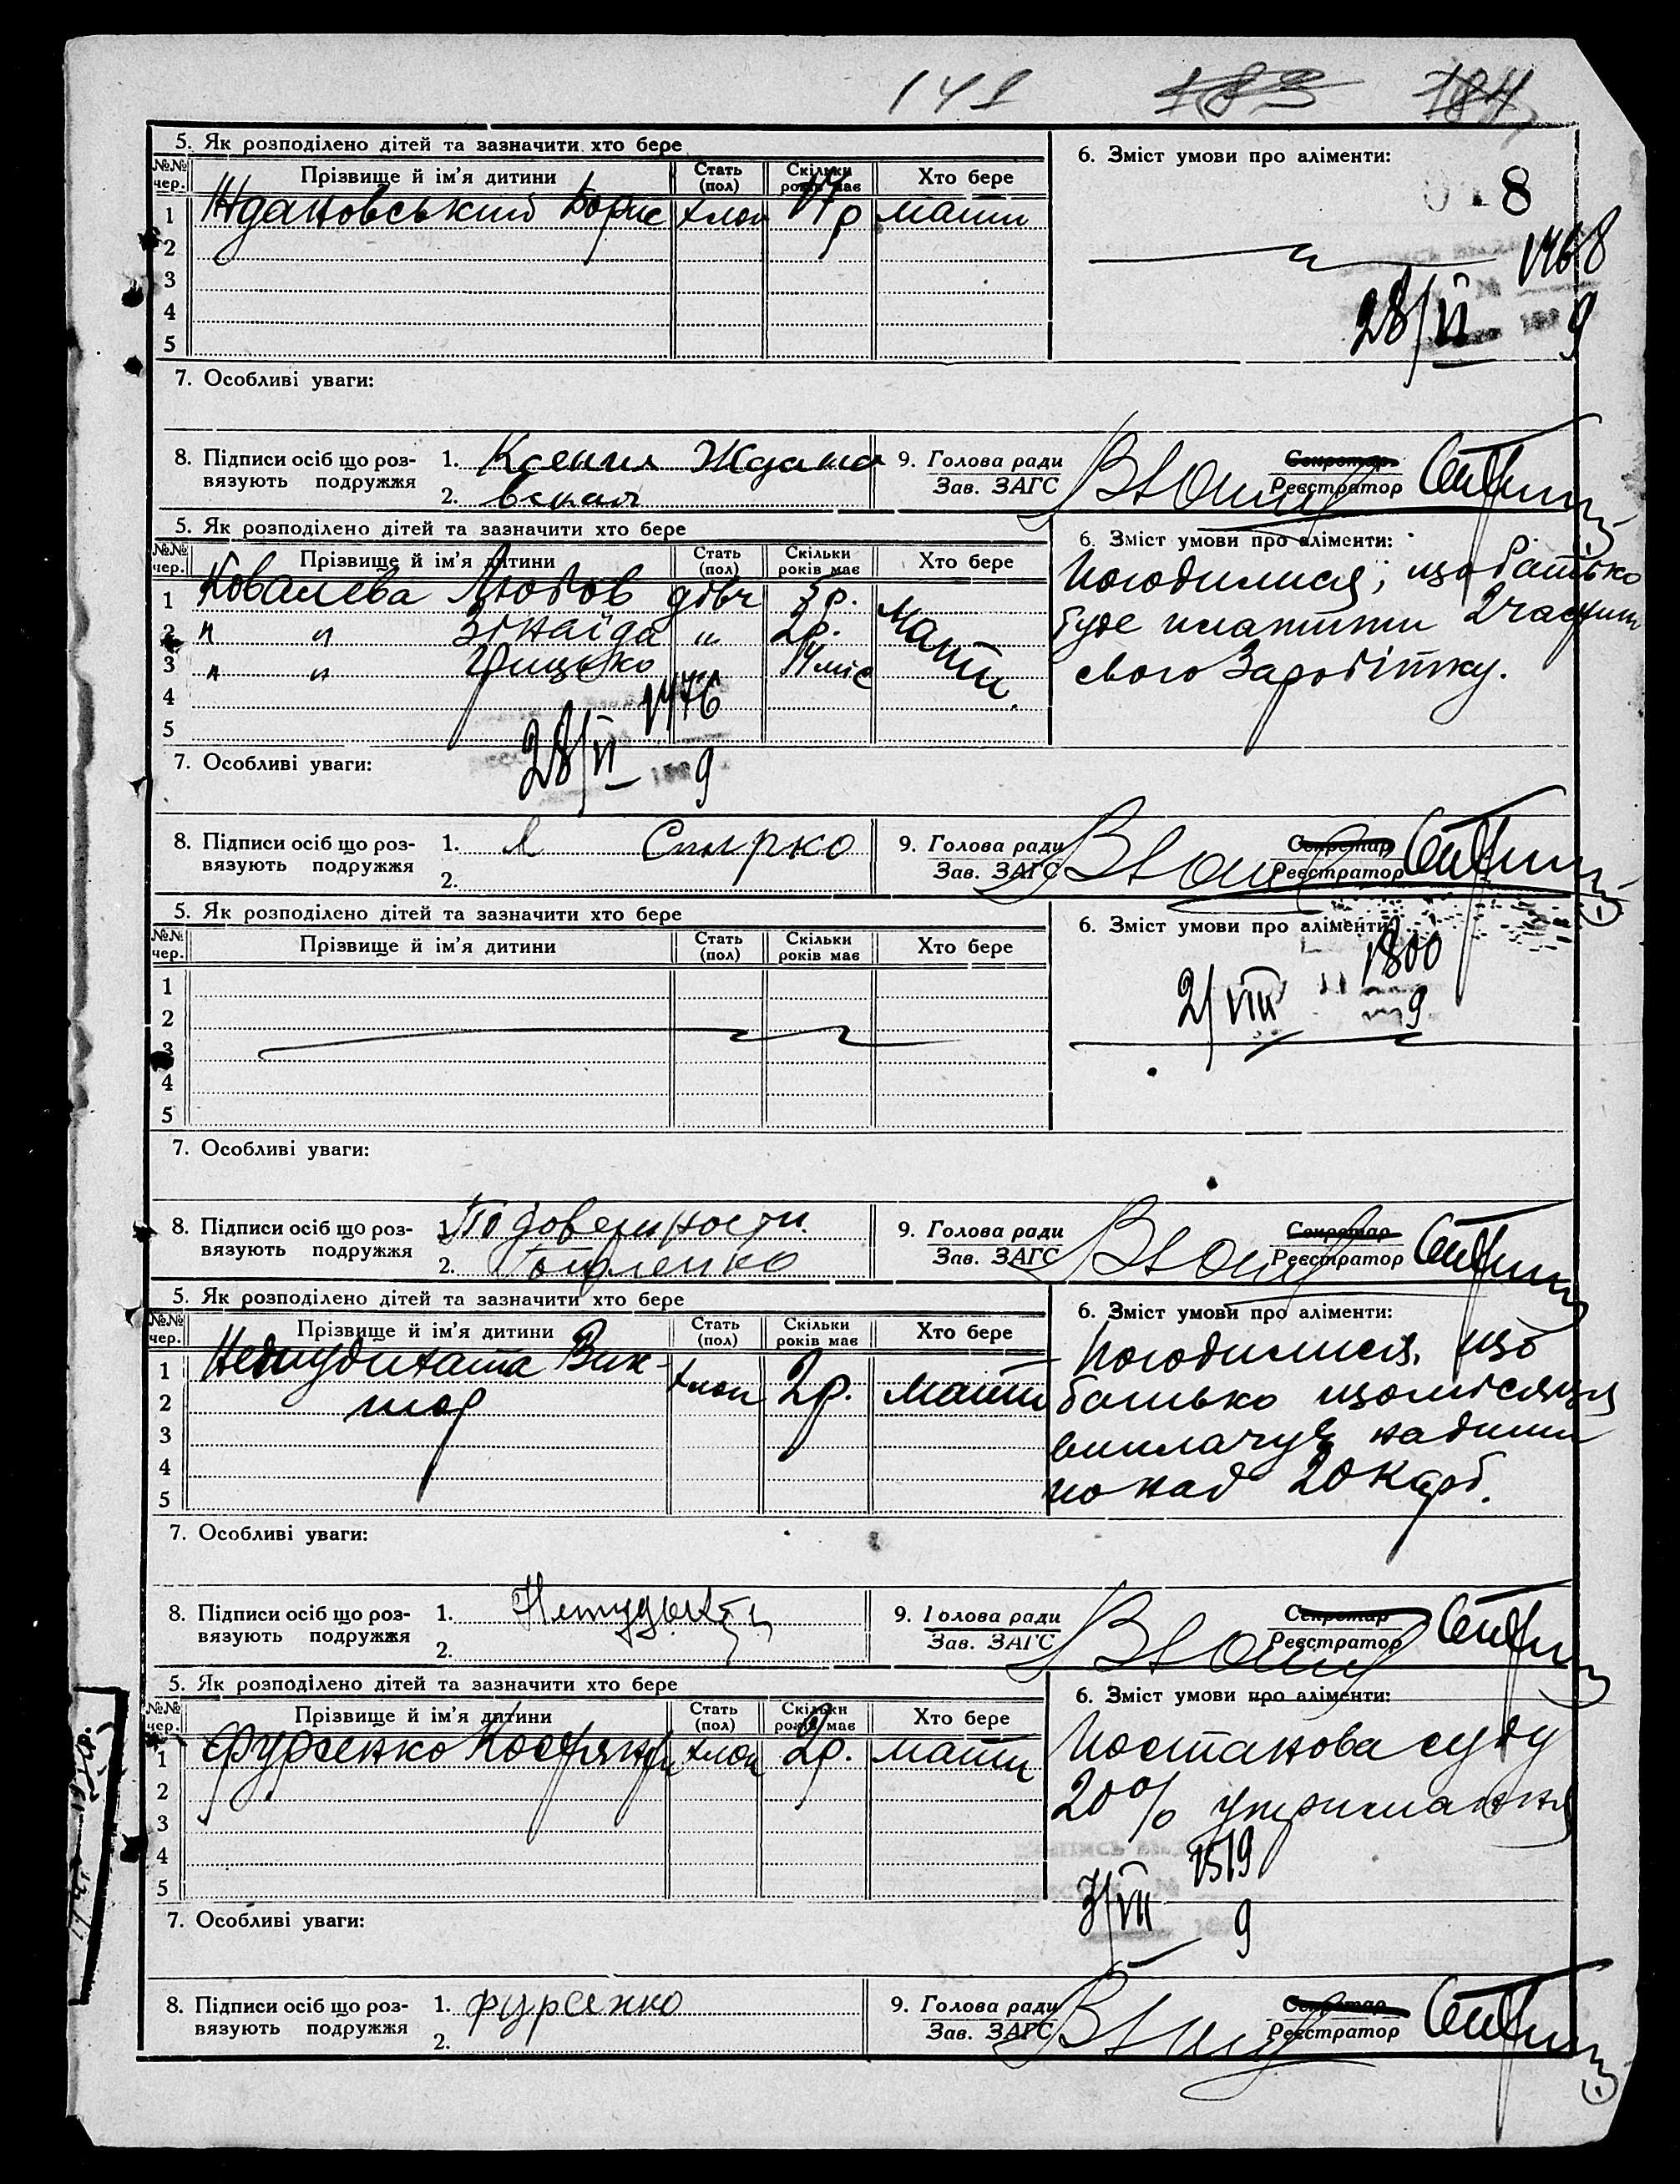 141 183 184
5. Як розподілено дітей та зазначити хто бере
№№ чер. Прізвище й ім'я дитини Стать (пол) Скільки років має Хто бере
1 Ждановський Борис хлоп 17 р мати
2
3
4
5
6. Зміст умови про аліменти:
8
1468
28/VI 9
7. Особливі уваги:
8. Підписи осіб що роз-
вязують подружжя
1. Ксения Ждано
2. вская
9. Голова ради
Зав. ЗАГС
Секретар
Реєстратор
5. Як розподілено дітей та зазначити хто бере
№№ чер. Прізвище й ім'я дитини Стать (пол) Скільки років має Хто бере
1 Ковалева Любов дівч 5р. Мати.
2 " " Зінаїда " 2р.
3 " " Грицько 14 міс
4
5
1476
28/VI 9
6. Зміст умови про аліменти:
Погодилися, що батько
буде платити 2 частин
свого Заробітку.
7. Особливі уваги:
8. Підписи осіб що роз-
вязують подружжя
1. Спирко
2.
9. Голова ради
Зав. ЗАГС
Секретар
Реєстратор
5. Як розподілено дітей та зазначити хто бере
№№ чер. Прізвище й ім'я дитини Стать (пол) Скільки років має Хто бере
1
2
3
4
5
6. Зміст умови про аліменти:
1800
2/VIII 9
7. Особливі уваги:
8. Підписи осіб що роз-
вязують подружжя
1. По доверености
2.
9. Голова ради
Зав. ЗАГС
Секретар
Реєстратор
5. Як розподілено дітей та зазначити хто бере
№№ чер. Прізвище й ім'я дитини Стать (пол) Скільки років має Хто бере
1 Вик-
2 тор хлоп 2р. мати
3
4
5
6. Зміст умови про аліменти:
Погодилися, що
батько щомісяця
виплачує
20 карб.
7. Особливі уваги:
8. Підписи осіб що роз-
вязують подружжя
1.
2.
9. Голова ради
Зав. ЗАГС
Секретар
Реєстратор
5. Як розподілено дітей та зазначити хто бере
№№ чер. Прізвище й ім'я дитини Стать (пол) Скільки років має Хто бере
1 Фурсенко хлоп 2р. мати
2
3
4
5
6. Зміст умови про аліменти:
Постанова суду
20% утримання
1519
3/VII 9
7. Особливі уваги:
8. Підписи осіб що роз-
вязують подружжя
1. Фурсенко
2.
9. Голова ради
Зав. ЗАГС
Секретар
Реєстратор